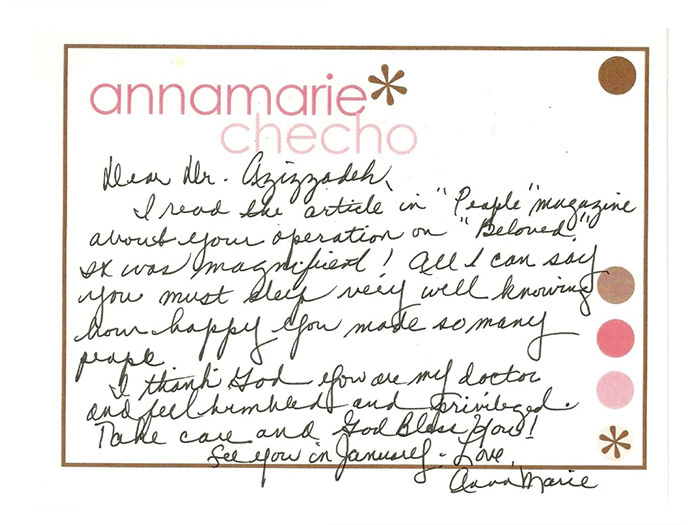 annamarie*
checho
Dear Dr. Azizzadeh,
I read the article in "People" magazine
about your operation on "Beloved."
It was magnificent! All I can say
you must sleep very well knowing
how happy you made so many
people
I thank God you are my doctor
and feel humbled and privileged.
Take care and God Bless You!
See you in January - Love,
Anna Marie